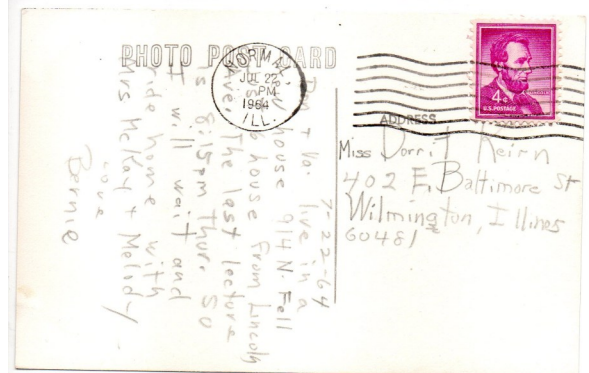 PHOTO POST CARD
JUL 22
PM
1964
ILL.
4¢
U.S. POSTAGE
ADDRESS
Miss Dorrit Keirn
402 E. Baltimore St
Wilmington, Illinos
60481
7-22-64
live in a
house 914 N. Fell
house from Lincoln
Ave. The last lecture
is 8:15pm Thur. So
I will wait and
ride home with
Mrs McKay + Melody
Love
Bernie